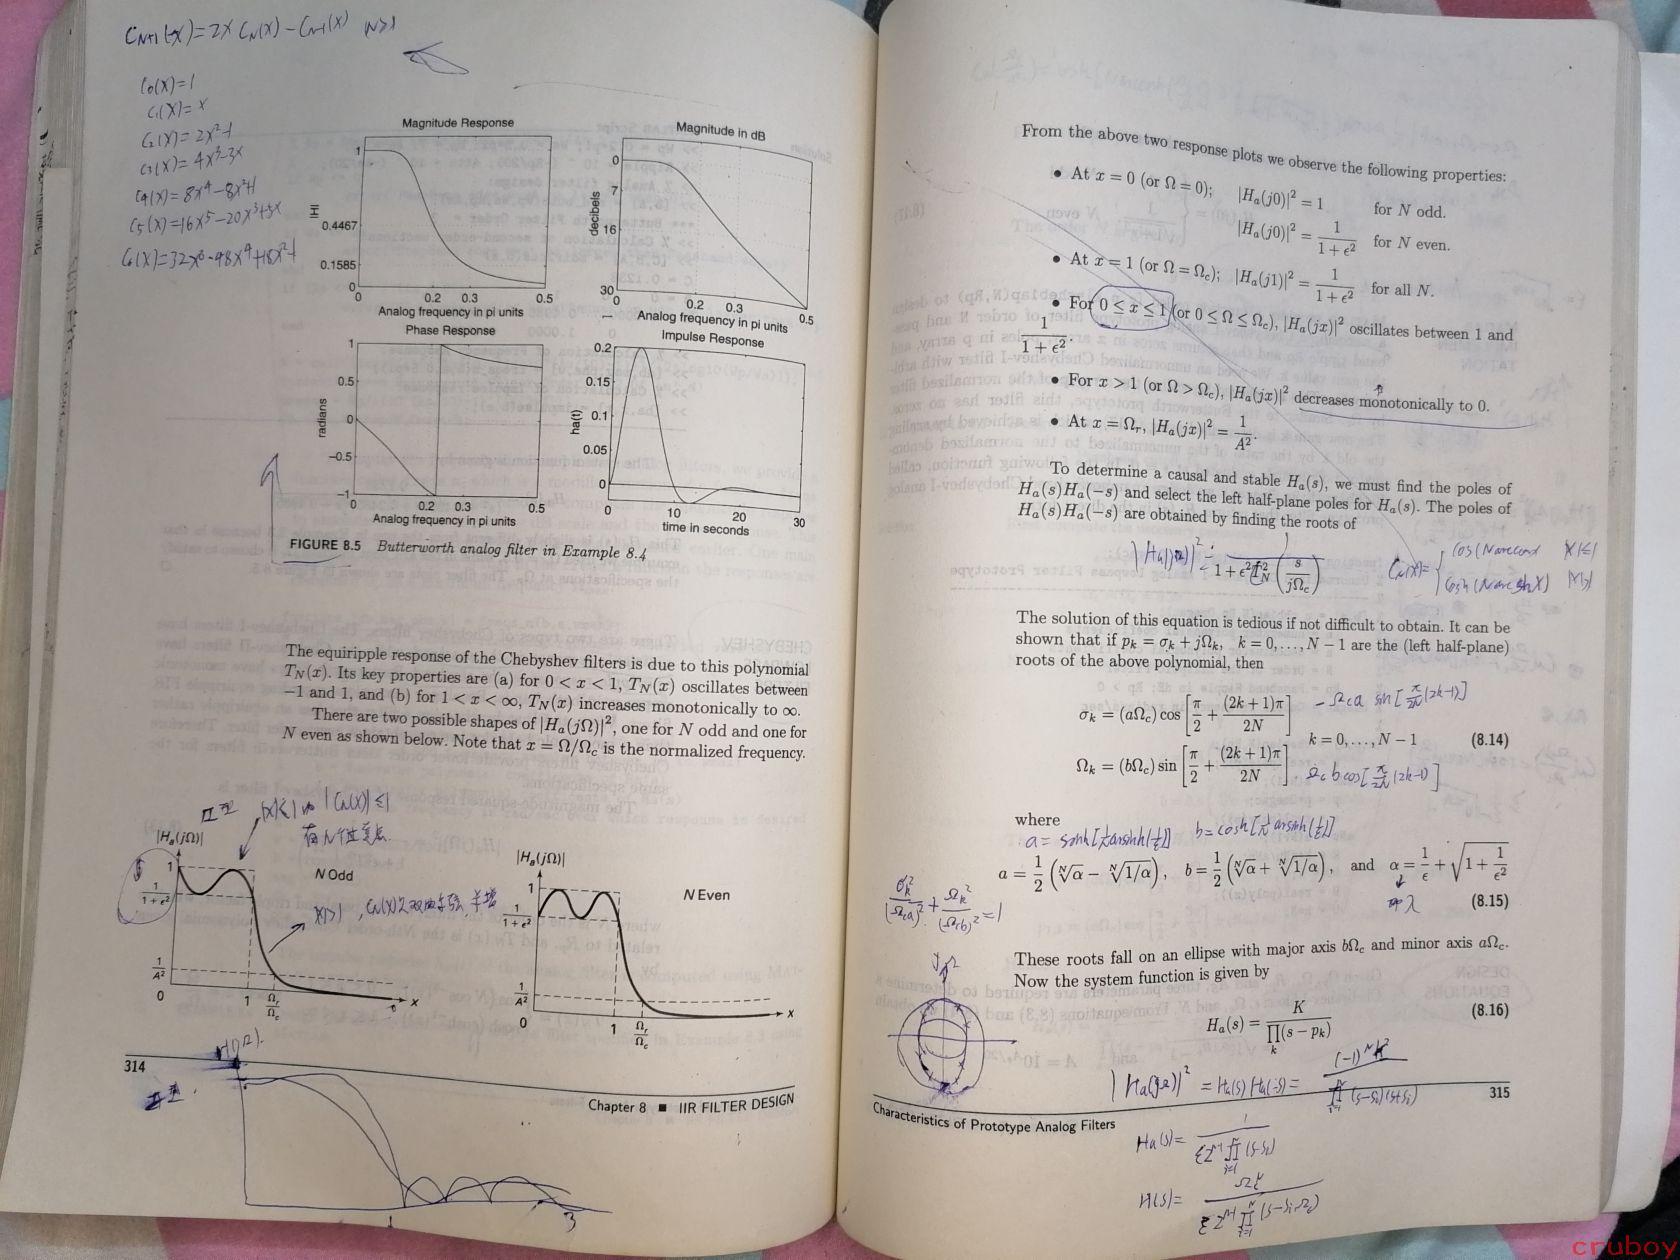 C_{N+1}(x)=2x C_N(x)-C_{N-1}(x) N≥1
C₀(x)=1
C₁(x)=x
C₂(x)=2x²-1
C₃(x)=4x³-3x
C₄(x)=8x⁴-8x²+1
C₅(x)=16x⁵-20x³+5x
C₆(x)=32x⁶-48x⁴+18x²-1
Magnitude Response
1
|H|
0.4467
0.1585
0
0 0.2 0.3 0.5
Analog frequency in pi units
Magnitude in dB
0
7
decibels
16
30
0 0.2 0.3 0.5
Analog frequency in pi units
Phase Response
1
0.5
radians
0
−0.5
−1
0 0.2 0.3 0.5
Analog frequency in pi units
Impulse Response
0.2
0.15
ha(t)
0.1
0.05
0
0 10 20 30
time in seconds
FIGURE 8.5 Butterworth analog filter in Example 8.4
The equiripple response of the Chebyshev filters is due to this polynomial
T_N(x). Its key properties are (a) for 0 < x < 1, T_N(x) oscillates between
−1 and 1, and (b) for 1 < x < ∞, T_N(x) increases monotonically to ∞.
There are two possible shapes of |H_a(jΩ)|², one for N odd and one for
N even as shown below. Note that x = Ω/Ω_c is the normalized frequency.
|x|≤1 |C_N(x)|≤1
|H_a(jΩ)|
1
N Odd
1/(1+ε²)
|x|>1
1/A²
0 1 Ω_r/Ω_c x
|H_a(jΩ)|
1
N Even
1/(1+ε²)
1/A²
0 1 Ω_r/Ω_c x
314
Chapter 8 ■ IIR FILTER DESIGN
1 3
From the above two response plots we observe the following properties:
• At x = 0 (or Ω = 0); |H_a(j0)|² = 1 for N odd.
|H_a(j0)|² = 1/(1+ε²) for N even.
• At x = 1 (or Ω = Ω_c); |H_a(j1)|² = 1/(1+ε²) for all N.
• For 0 ≤ x ≤ 1 (or 0 ≤ Ω ≤ Ω_c), |H_a(jx)|² oscillates between 1 and
1/(1+ε²).
• For x > 1 (or Ω > Ω_c), |H_a(jx)|² decreases monotonically to 0.
• At x = Ω_r, |H_a(jx)|² = 1/A².
To determine a causal and stable H_a(s), we must find the poles of
H_a(s)H_a(−s) and select the left half-plane poles for H_a(s). The poles of
H_a(s)H_a(−s) are obtained by finding the roots of
|H_a(jΩ)|² = 1/(1+ε²T_N²(s/(jΩ_c)))
C_N(x)= |x|≤1
|x|>1
The solution of this equation is tedious if not difficult to obtain. It can be
shown that if p_k = σ_k + jΩ_k, k = 0,...,N − 1 are the (left half-plane)
roots of the above polynomial, then
σ_k = (aΩ_c) cos[π/2 + (2k+1)π/2N] -Ω_c a sin[π/2N(2k-1)]
k = 0,...,N − 1 (8.14)
Ω_k = (bΩ_c) sin[π/2 + (2k+1)π/2N]. Ω_c b cos[π/2N(2k-1)]
where
a= sinh[1/N arsinh(1/ε)] b=cosh[1/N arsinh(1/ε)]
a = 1/2(ᴺ√α − ᴺ√1/α), b = 1/2(ᴺ√α + ᴺ√1/α), and α = 1/ε + √(1 + 1/ε²)
(8.15)
即λ
σ_k²/(Ω_c a)² + Ω_k²/(Ω_c b)² = 1
These roots fall on an ellipse with major axis bΩ_c and minor axis aΩ_c.
Now the system function is given by
jΩ
H_a(s) = K/∏_k(s − p_k) (8.16)
|H_a(jΩ)|² = H_a(s) H_a(-s) =
315
Characteristics of Prototype Analog Filters
H_a(s)=
H(s)=
cruboy